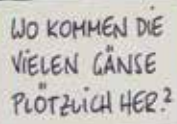 WO KOMMEN DIE
VIELEN GÄNSE
PLÖTZLICH HER?